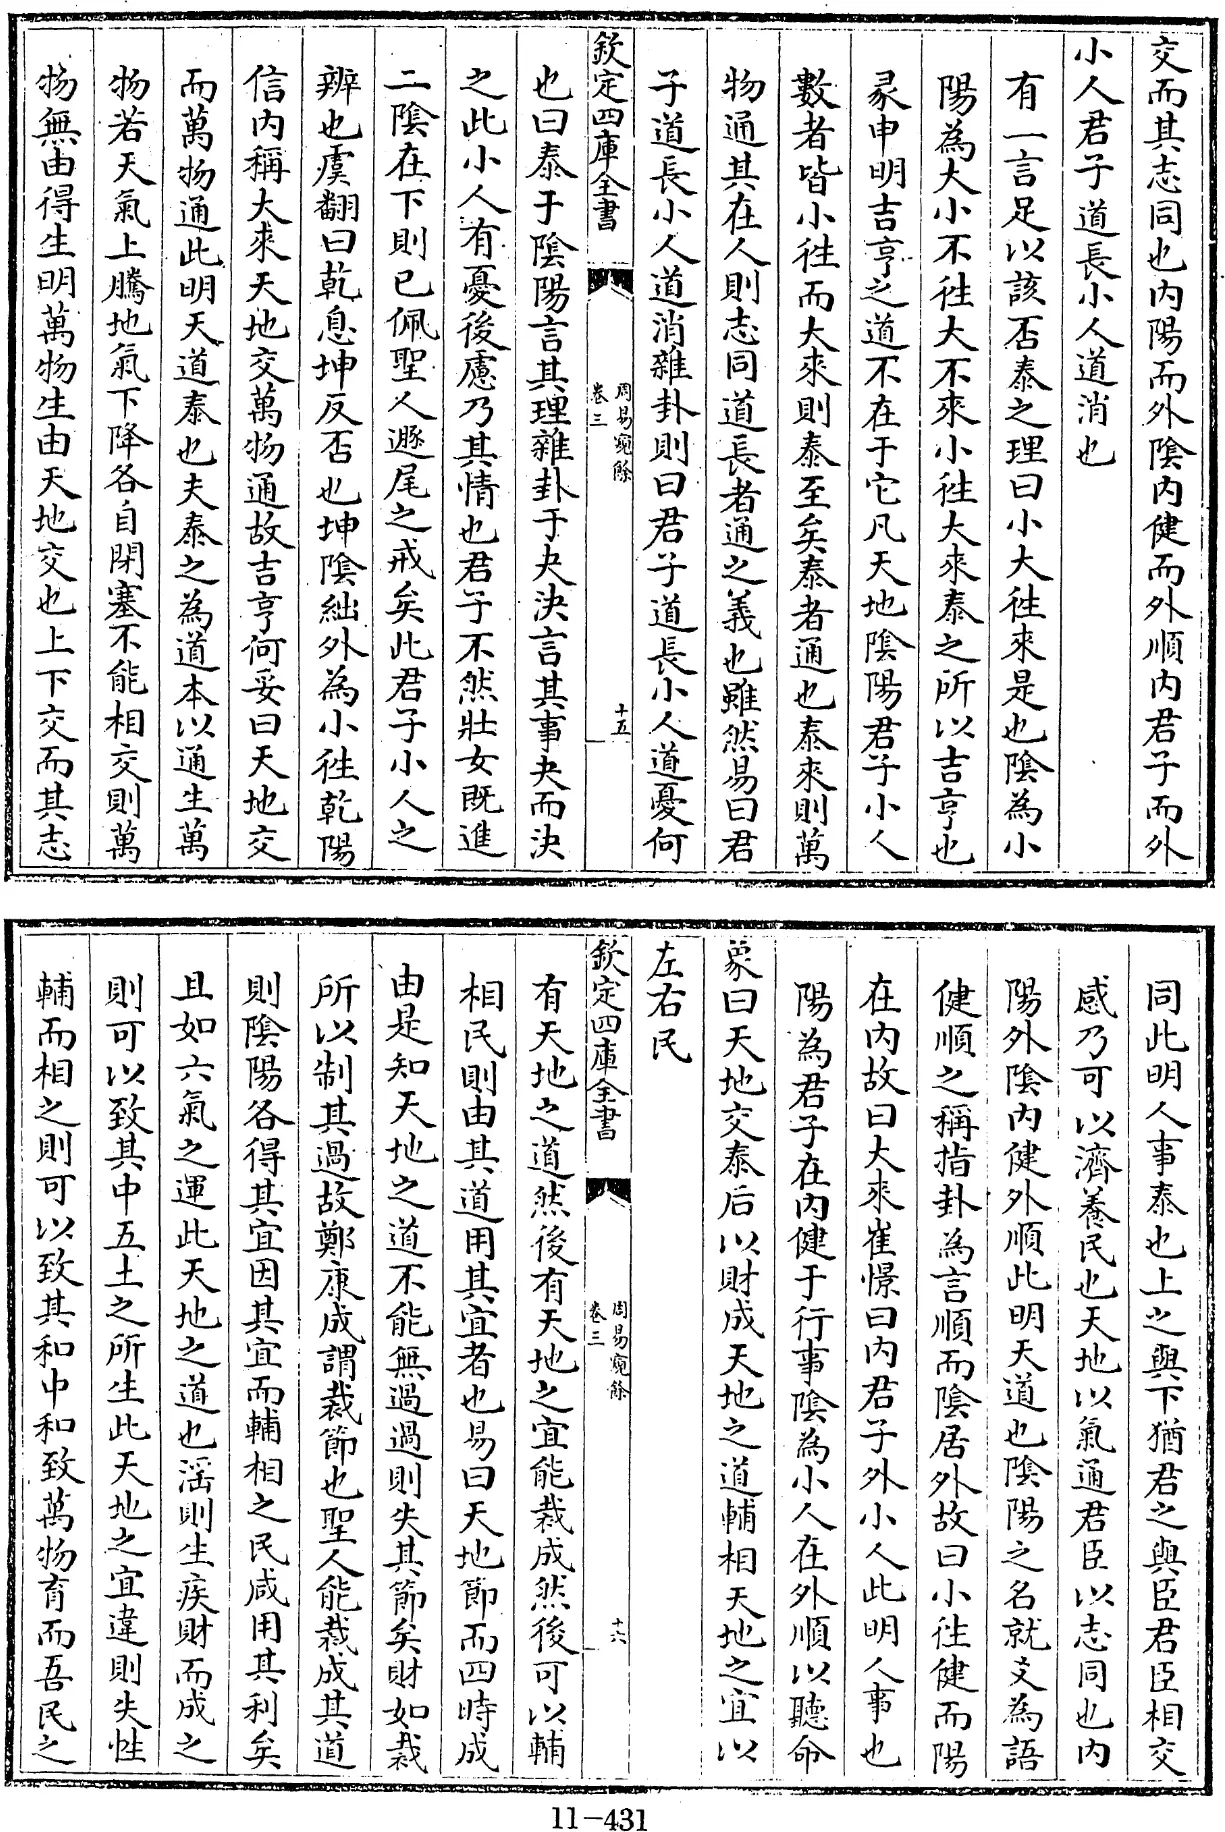 交而其志同也内陽而外陰内健而外順内君子而外
小人君子道長小人道消也
有一言足以該否泰之理曰小大徃來是也陰為小
陽為大小不徃大不來小徃大來泰之所以吉亨也
彖申明吉亨之道不在于它凡天地陰陽君子小人
數者皆小徃而大來則泰至矣泰者通也泰來則萬
物通其在人則志同道長者通之義也雖然易曰君
子道長小人道消雜卦則曰君子道長小人道憂何
欽定四庫全書
周易窺餘
卷三
十五
也曰泰于陰陽言其理雜卦于夬決言其事夬而決
之此小人有憂後慮乃其情也君子不然壯女既進
二陰在下則已佩聖人遯尾之戒矣此君子小人之
辨也虞翻曰乾息坤反否也坤陰絀外為小徃乾陽
信内稱大來天地交萬物通故吉亨何妥曰天地交
而萬物通此明天道泰也夫泰之為道本以通生萬
物若天氣上騰地氣下降各自閉塞不能相交則萬
物無由得生明萬物生由天地交也上下交而其志
同此明人事泰也上之與下猶君之與臣君臣相交
感乃可以濟養民也天地以氣通君臣以志同也内
陽外陰内健外順此明天道也陰陽之名就爻為語
健順之稱指卦為言順而陰居外故曰小徃健而陽
在内故曰大來崔憬曰内君子外小人此明人事也
陽為君子在内健于行事陰為小人在外順以聽命
象曰天地交泰后以財成天地之道輔相天地之宜以
左右民
欽定四庫全書
周易窺餘
卷三
十六
有天地之道然後有天地之宜能裁成然後可以輔
相民則由其道用其宜者也易曰天地節而四時成
由是知天地之道不能無過過則失其節矣財如裁
所以制其過故鄭康成謂裁節也聖人能裁成其道
則陰陽各得其宜因其宜而輔相之民咸用其利矣
且如六氣之運此天地之道也滛則生疾財而成之
則可以致其中五土之所生此天地之宜違則失性
輔而相之則可以致其和中和致萬物育而吾民之
11-431